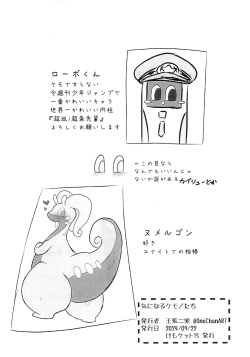 ローポくん
ケモですらない
今週刊少年ジャンプで
一番かわいいキャラ
世界一かわいい円柱
『超巡!超条先輩』
よろしくお願いします
←この目なら
なんでもいいんじゃ
ないか説がある
カイリューとか
ヌメルゴン
好き
ユナイトでの相棒
気になるケモノたち
発行者 王案二索 @OneChanART
発行日 2024/09/22
けもケット15 発行